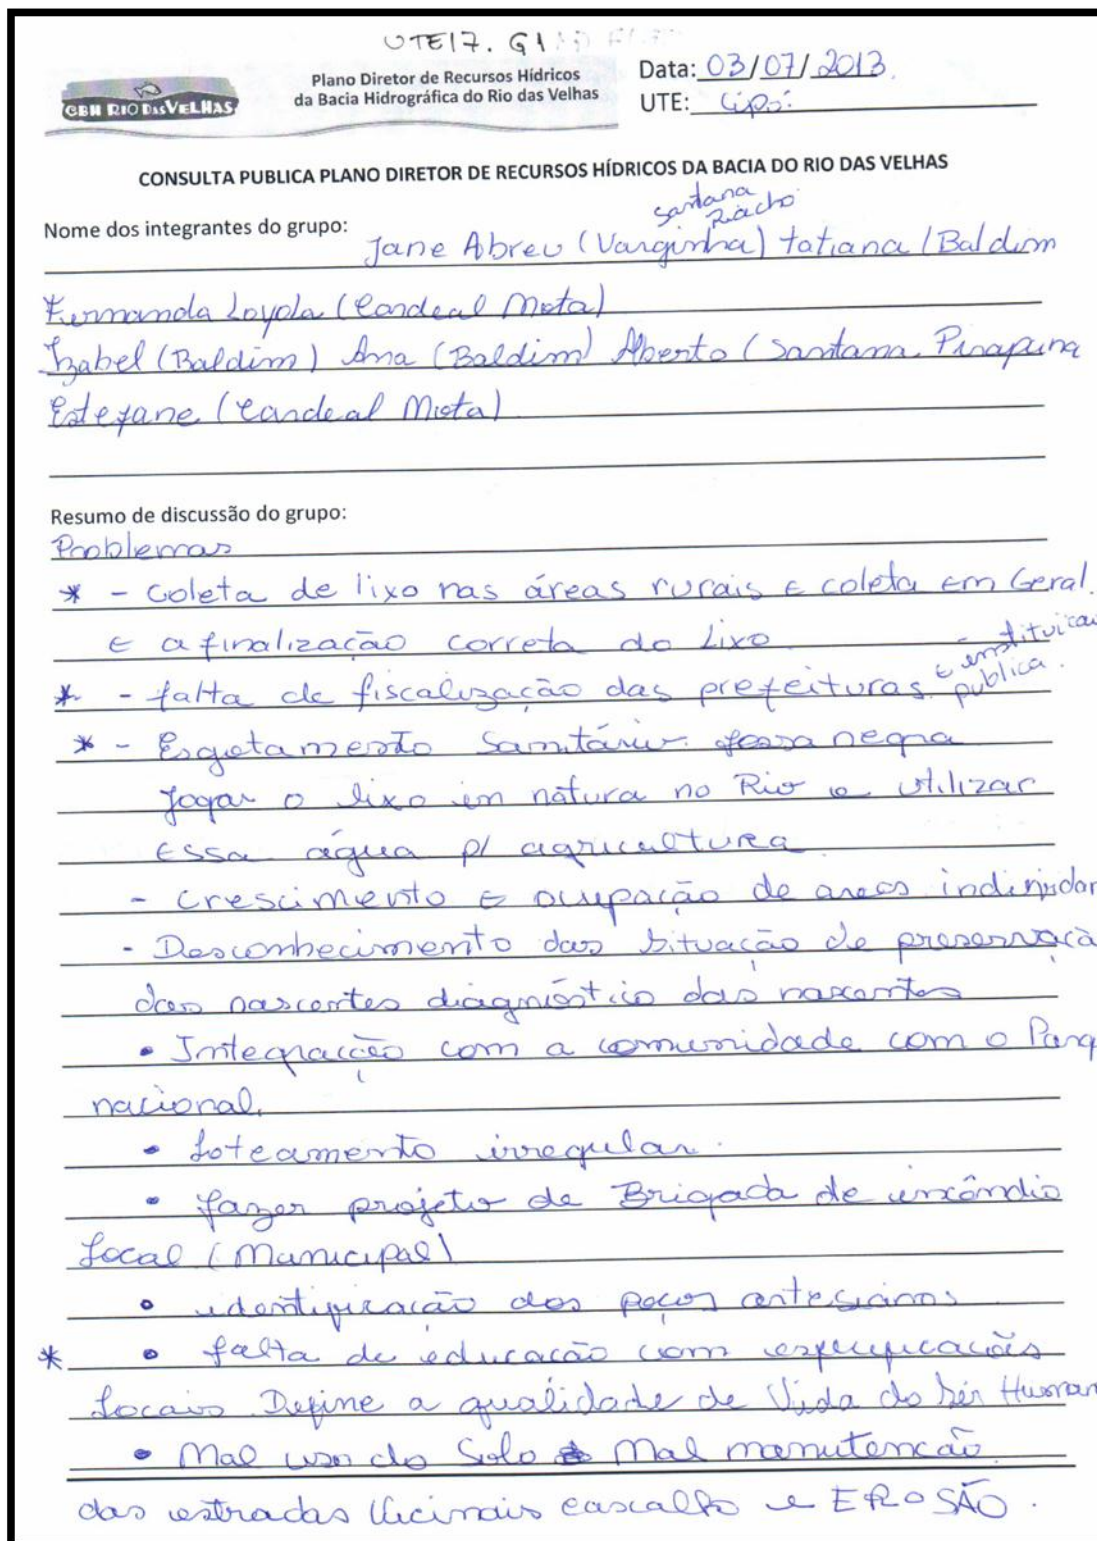 UTE17. G1
CBH RIO DAS VELHAS
Plano Diretor de Recursos Hídricos
da Bacia Hidrográfica do Rio das Velhas
Data: 03/07/2013.
UTE: Cipó.
CONSULTA PUBLICA PLANO DIRETOR DE RECURSOS HÍDRICOS DA BACIA DO RIO DAS VELHAS
Santana
Riacho
Nome dos integrantes do grupo:
Jane Abreu (Varginha) tatiana (Baldim
Fernanda Loyola (Cardeal Mota)
Izabel (Baldim) Ana (Baldim) Aberto (Santana Pirapama
Estefane (Cardeal Mota)
Resumo de discussão do grupo:
Problemas
* - Coleta de lixo nas áreas rurais E coleta em Geral.
E a finalização correta do Lixo.
* - falta de fiscalização das prefeituras. E instituicao
publica.
* - Esgotamento Sanitário. fossa negra
Jogar o lixo in natura no Rio e utilizar
Essa água p/ agricultura.
- Crescimento E ocupação de areas
- Desconhecimento das Situação de preservaçã
das nascentes diagnóstico das nascentes
• Integracção com a comunidade com o Parq
nacional.
• Loteamento irregular.
• fazer projeto de Brigada de incêndio
Local (Municipal)
• identificação dos poços artesianos
* • falta de educação com especificações
Locais Define a qualidade de Vida do Sér Human
• Mal uso do Solo Mal manutencão
das estradas Vicinais cascalho e EROSÃO.